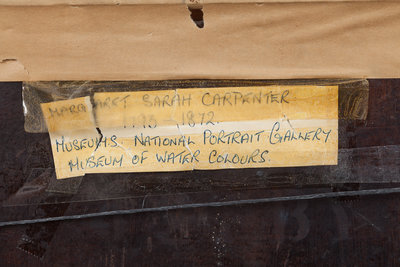 MARGARET SARAH CARPENTER
1793 - 1872.
MUSEUMS. NATIONAL PORTRAIT GALLERY
MUSEUM OF WATER COLOURS.